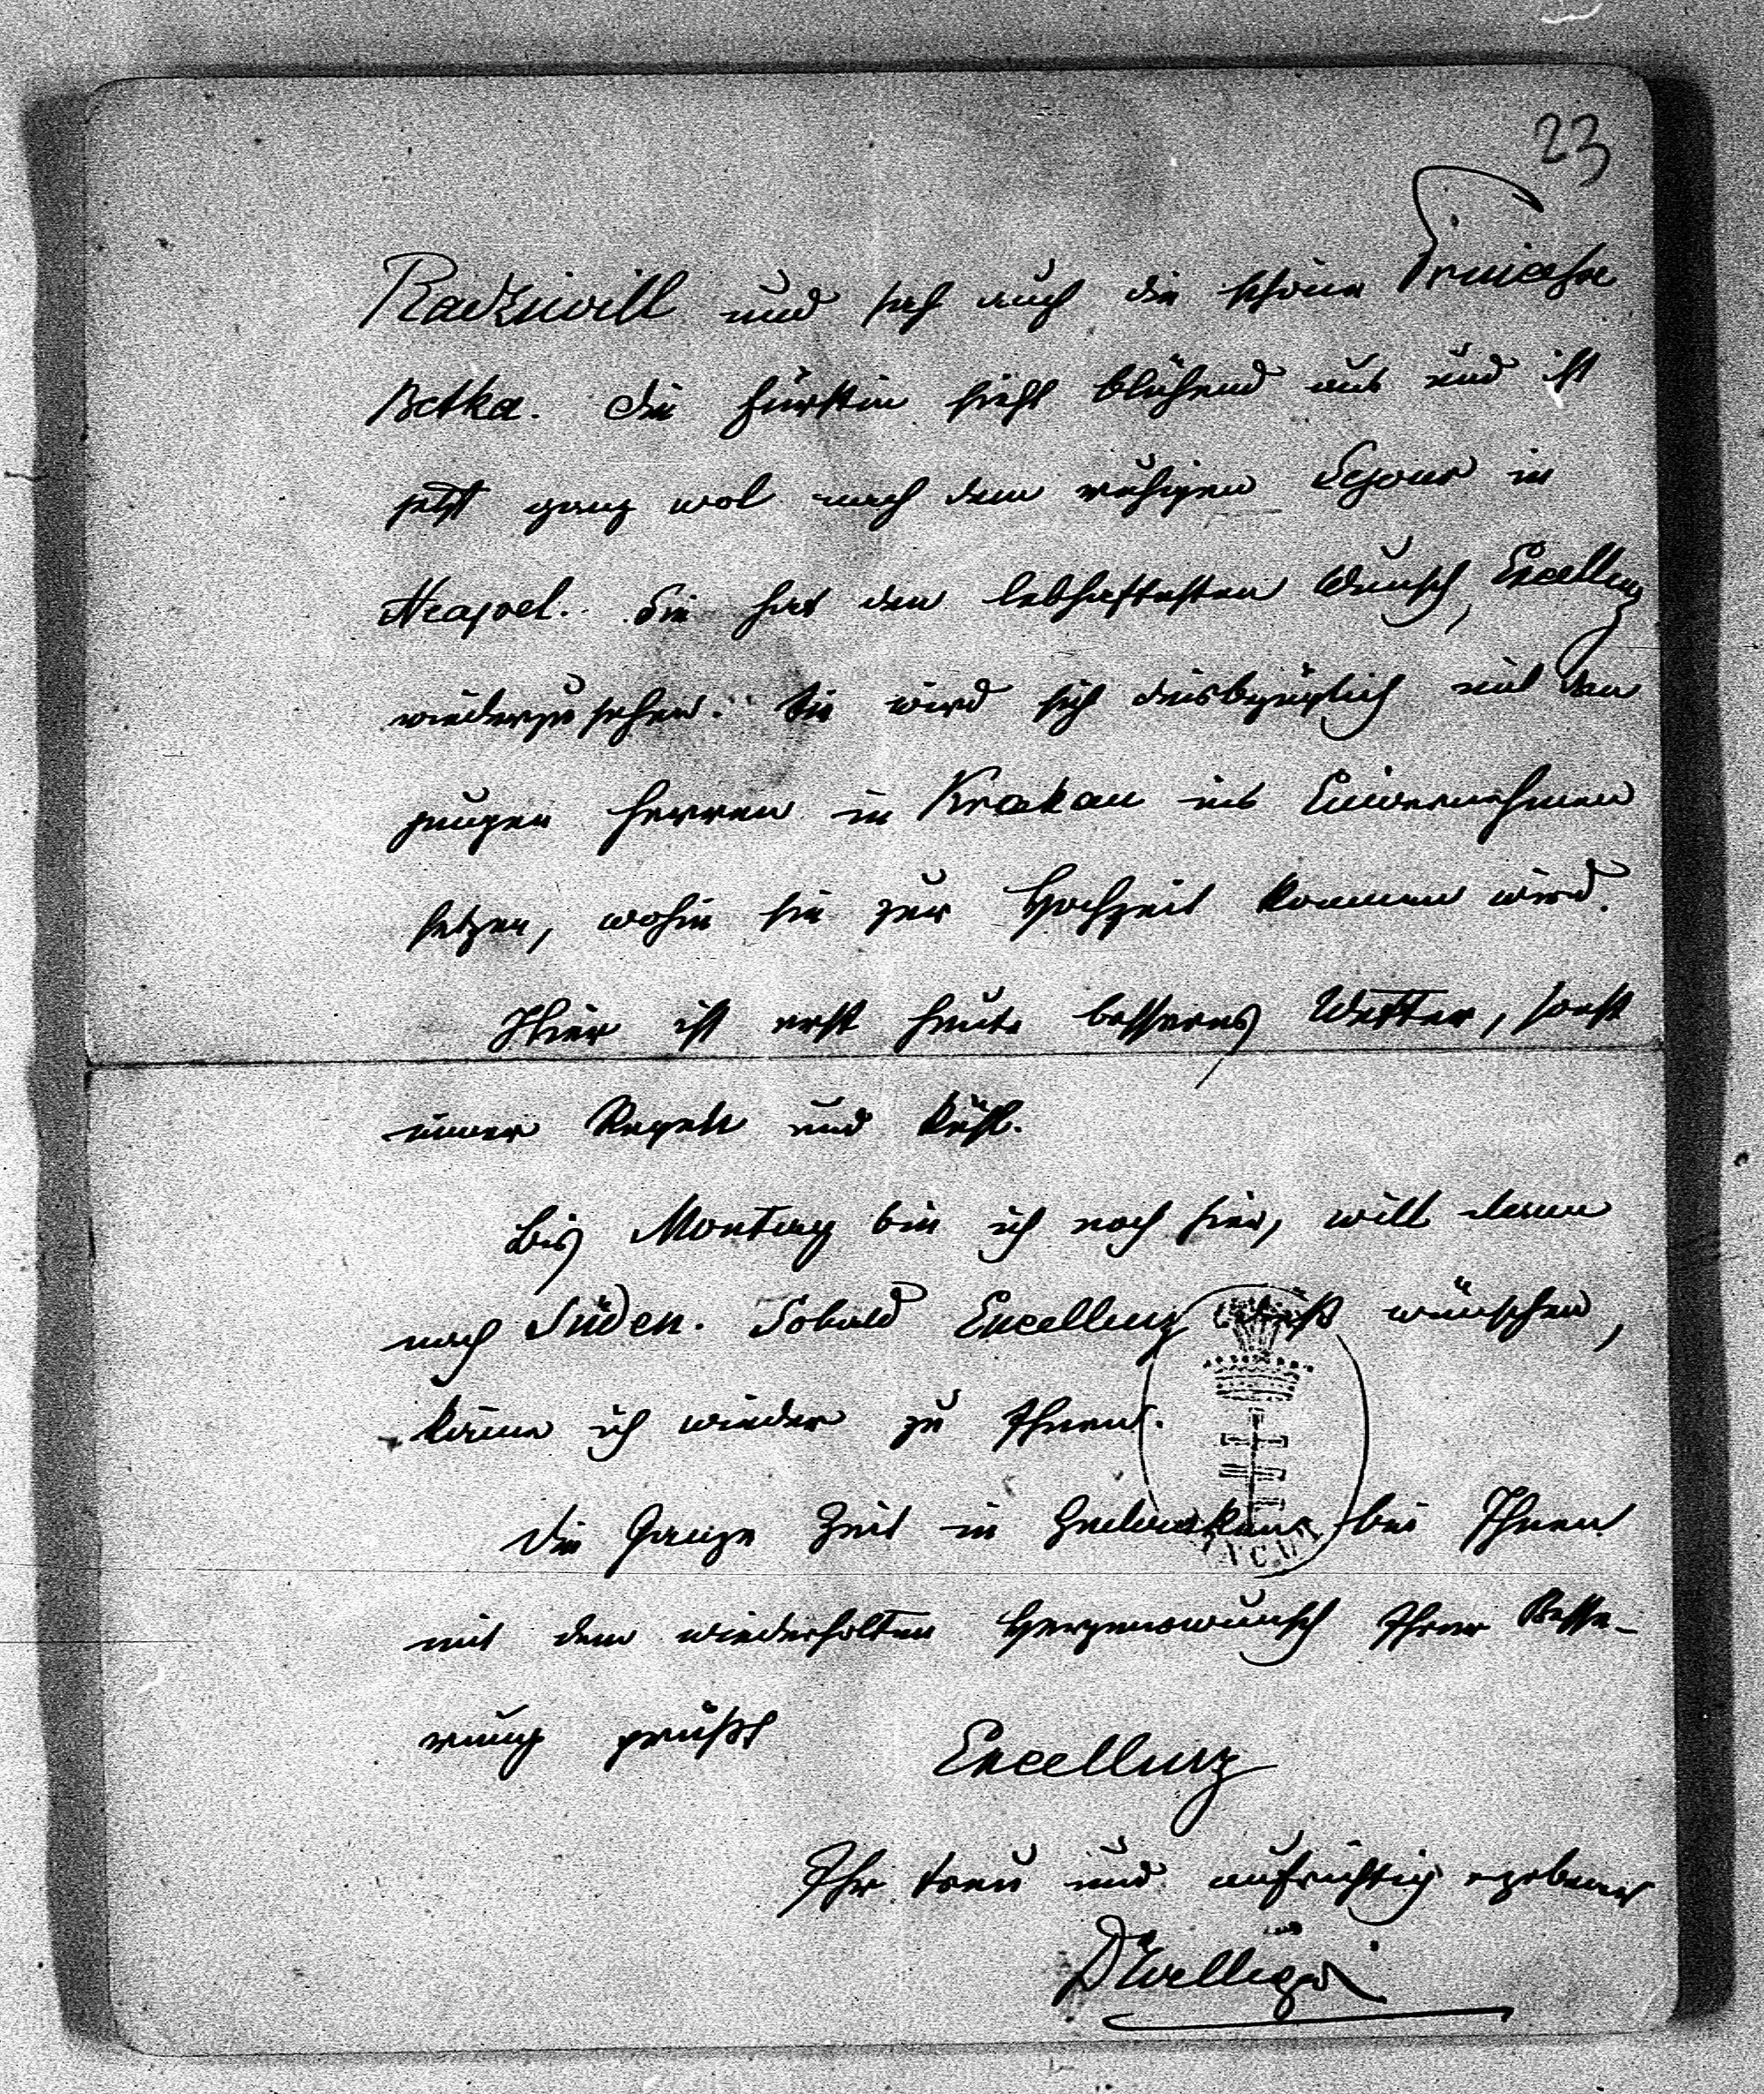 23
Radziwill und sah auch die schöne Princesse
Betka. Die Fürstin sieht blühend aus und ist
jetzt ganz wol nach dem ruhigen Sejour in
Neapel. Sie hat den lebhaftesten Wunsch, Excellenz
wiederzusehen. Sie wird sich diesbezüglich mit den
jungen Herren in Krakau ins Einvernehmen
setzen, wohin sie zur Hochzeit kommen wird.
Hier ist erst heute besseres Wetter, sonst
immer Regen und kühl.
Bis Montag bin ich noch hier, will dann
nach Süden. Sobald Excellenz wünschen,
käme ich wieder zu Ihnen.
Die ganze Zeit in Gedanken bei Ihnen
mit dem wiederholten Herzenswunsch Ihrer Besse-
rung grüßt Excellenz
Ihr treu und aufrichtig ergebener